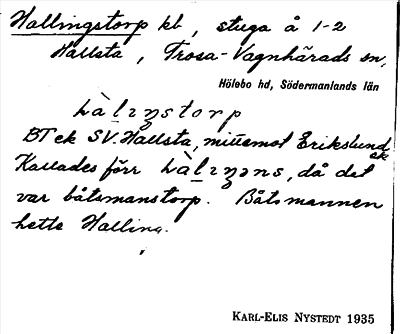 Hallingstorp kb, stuga å 1-2
Hallsta, Trosa-Vagnhärads sn,
Hölebo hd, Södermanlands län
hàlıŋstorp
BT ek SV. Hallsta, mittemot Erikslund
Kallades förr hàlıŋəns, då det
var båtsmanstorp. Båtsmannen
hette Halling.
KARL-ELIS NYSTEDT 1935